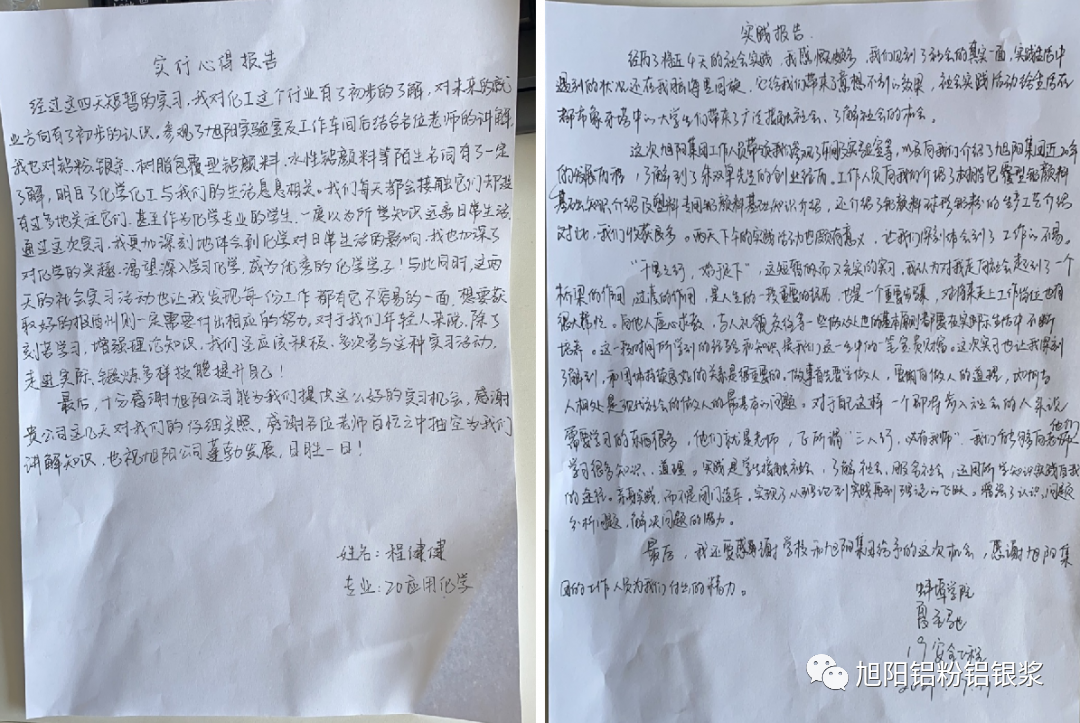 实行心得报告
经过这四天短暂的实习,我对化工这个行业有了初步的了解,对未来的就
业方向有了初步的认识。参观了旭阳实验室及工作车间后结合各位老师的讲解,
我也对铝粉、银浆、树脂包覆型铝颜料、水性铝颜料等陌生名词有了一定
了解,明白了化学化工与我们的生活息息相关。我们每天都会接触它们却没
有过多地关注它们。甚至作为化学专业的学生,一度以为所学知识远离日常生活
通过这次实习,我更加深刻地体会到化学对日常生活的影响,我也加深了
对化学的兴趣,渴望深入学习化学,成为优秀的化学学子!与此同时,这两
天的社会实习活动也让我发现每份工作都有它不容易的一面,想要获
取好的报酬则一定需要付出相应的努力。对于我们年轻人来说,除了
刻苦学习,增强理论知识,我们还应该积极、多次参与这种实习活动,
走进实际、锻炼多种技能提升自己!
最后,十分感谢旭阳公司能为我们提供这么好的实习机会,感谢
贵公司这几天对我们的仔细关照,感谢各位老师百忙之中抽空为我们
讲解知识,也祝旭阳公司蓬勃发展,日胜一日!
姓名:程健健
专业:20应用化学
实践报告
经历了将近4天的社会实践,我感慨颇多,我们见到了社会的真实一面,实践生活中
遇到的状况还在我脑海里回旋,它给我们带来了意想不到的效果,社会实践活动给生活在
都市象牙塔中的大学生们带来了广泛接触社会、了解社会的机会。
这次旭阳集团工作人员带领我们参观了车间及实验室等,以及向我们介绍了旭阳集团近20年
的发展历程,了解到了朱双单先生的创业经历。工作人员向我们介绍了树脂包覆型铝颜料
基础知识介绍及塑料专用铝颜料基础知识介绍,还介绍了铝颜料球形铝粉的生产工艺介绍
对此,我们收获良多。两天下午的实践活动也颇有意义,让我们深刻体会到了工作的不易。
“千里之行,始于足下”,这短暂的而又充实的实习,我认为对我走向社会起到了一个
桥梁的作用,过渡的作用,是人生的一段重要的经历,也是一个重要步骤,对将来走上工作岗位也有
很大帮忙。向他人虚心求教,与人礼貌交往等一些做人处世的基本原则都要在实际生活中不断
培养。这一段时间所学到的经验和知识是我们这一生中的一笔宝贵财富。这次实习也让我深刻
了解到,和团体持续良好的关系是很重要的。做事首先要学做人,要明白做人的道理,如何与
人相处是现代社会的做人的最基本的问题。对于自己这样一个即将步入社会的人来说
需要学习的东西很多,他们就是老师,正所谓“三人行,必有我师”,我们能够向他们
学习很多知识、道理。实践是学生接触社会,了解社会,服务社会,运用所学知识实践自我
的途径。亲身实践,而不是闭门造车。实现了从理论到实践再到理论的飞跃。增强了认识问题
分析问题,解决问题的能力。
最后,我还要感谢学校和旭阳集团给予的这次机会,感谢旭阳集
团的工作人员为我们付出的精力。
蚌埠学院
19安全工程
旭阳铝粉铝银浆